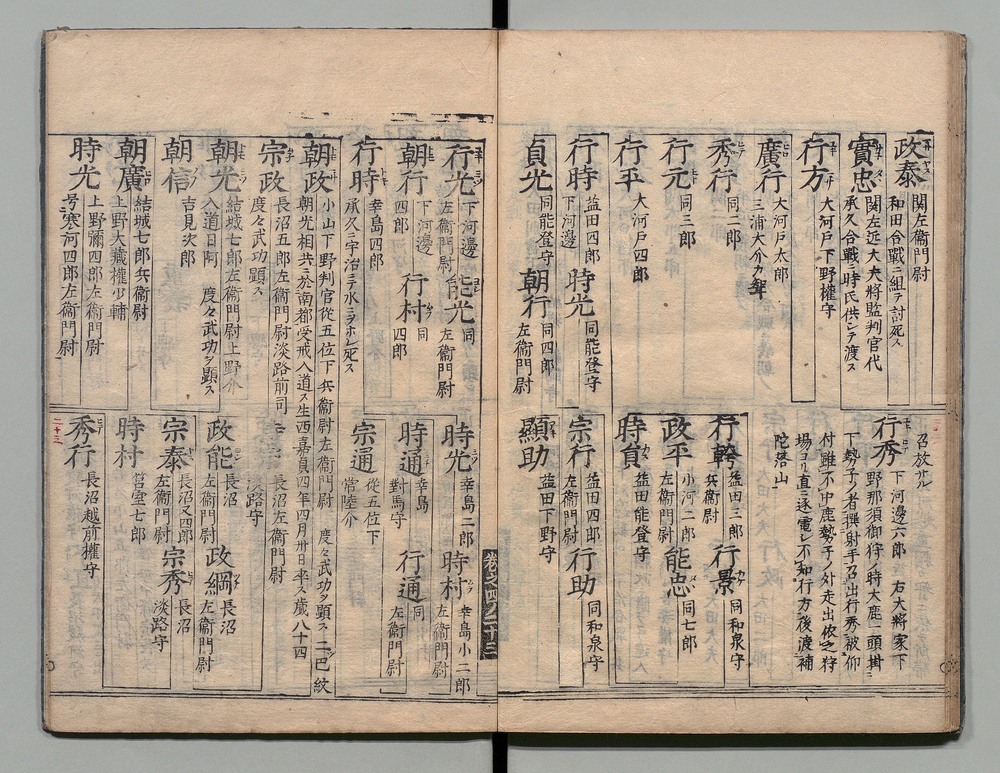 政泰
関左衞門尉
和田合戰ニ組テ討死ス
實忠
関左近大夫將監判官代
承久合戰ニ時氏供シテ渡ス
行方
大河戸下野權守
廣行
大河戸太郎
三浦大介カ聟
秀行
同二郎
行元
同三郎
行平
大河戸四郎
行時
益田四郎
下河邊
時光
同能登守
貞光
同能登守
朝行
同四郎
左衞門尉
召放サル
行秀
下河邊六郎 右大將家下
野那須御狩ノ時大鹿一頭掛ニ
下勢子ノ者撰射手召出行秀被仰
付雖不中鹿勢子ノ外走出依之狩
場ヨリ直ニ逐電シ不知行方後渡補
陀落山
行幹
益田三郎
兵衞尉
行景
同和泉守
政平
小河二郎
左衞門尉
能忠
同七郎
時員
益田能登守
宗行
益田四郎
左衞門尉
行助
同和泉守
顯助
益田下野守
行光
下河邊
左衞門尉
能光
同
左衞門尉
朝行
下河邊
四郎
行村
同
四郎
行時
幸島四郎
承久ニ宇治ニテ水ニヲホレ死ス
朝政
小山下野判官從五位下兵衞尉左衞門尉 度々武功ヲ顕ス 二巴紋
朝光相共ニ於南都受戒入道ス生西嘉貞四年四月卅日卒ス歳八十四
宗政
長沼五郎左衞門尉淡路前司
度々武功顕ス
朝光
結城七郎左衞門尉上野介
入道日阿 度々武功ヲ顕ス
朝信
吉見次郎
朝廣
結城七郎兵衞尉
上野大藏權少輔
時光
上野彌四郎左衞門尉
号寒河四郎左衞門尉
卷之四ノ二十三
時光
幸島二郎
時村
幸島小二郎
左衞門尉
時通
幸島
對馬守
行通
同
左衞門尉
宗通
從五位下
常陸介
長沼左衞門尉
淡路守
政能
長沼
左衞門尉
政綱
長沼
左衞門尉
宗泰
長沼又四郎
左衞門尉
宗秀
長沼
淡路守
時村
箕室七郎
秀行
長沼越前權守
二十三